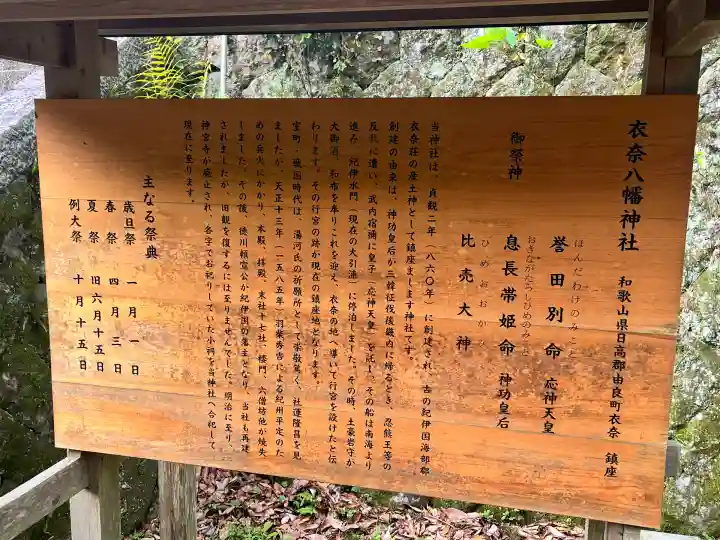 衣奈八幡神社　和歌山県日高郡由良町衣奈　鎮座
御祭神
ほんだわけのみこと
誉田別命　応神天皇
おきながたらしひめのみこと
息長帯姫命　神功皇后
ひめおおかみ
比売大神
当神社は、貞観二年（八六〇年）に創建され、古の紀伊国海部郡
衣奈荘の産土神として鎮座まします神社です。
創建の由来は、神功皇后が三韓征伐後畿内に帰るとき、忍熊王等の
反乱に遭い、武内宿禰に皇子（応神天皇）を託し、その船は南海より
進み、紀伊水門（現在の大引浦）に停泊しました。その時、土豪岩守が
大御酒、和布を奉りこれを迎え、衣奈の地へ導いて行宮を設けたと伝
わります。その行宮の跡が現在の鎮座地となります。
室町、戦国時代は、湯河氏の祈願所として崇敬篤く、社運隆昌を見
ましたが、天正十三年（一五八五年）羽柴秀吉による紀州平定のた
めの兵火にかかり、本殿、拝殿、末社十七社、楼門、六僧坊他が焼失
しました。その後、徳川頼宣公が紀伊国の藩主となり、当社も再建
されましたが、旧観を復するには至りませんでした。明治に至り、
神宮寺が廃止され、各字でお祀りしていた小祠を当神社へ合祀して
現在に至ります。
主なる祭典
歳旦祭　一月一日
春祭　四月三日
夏祭　旧六月十五日
例大祭　十月十五日